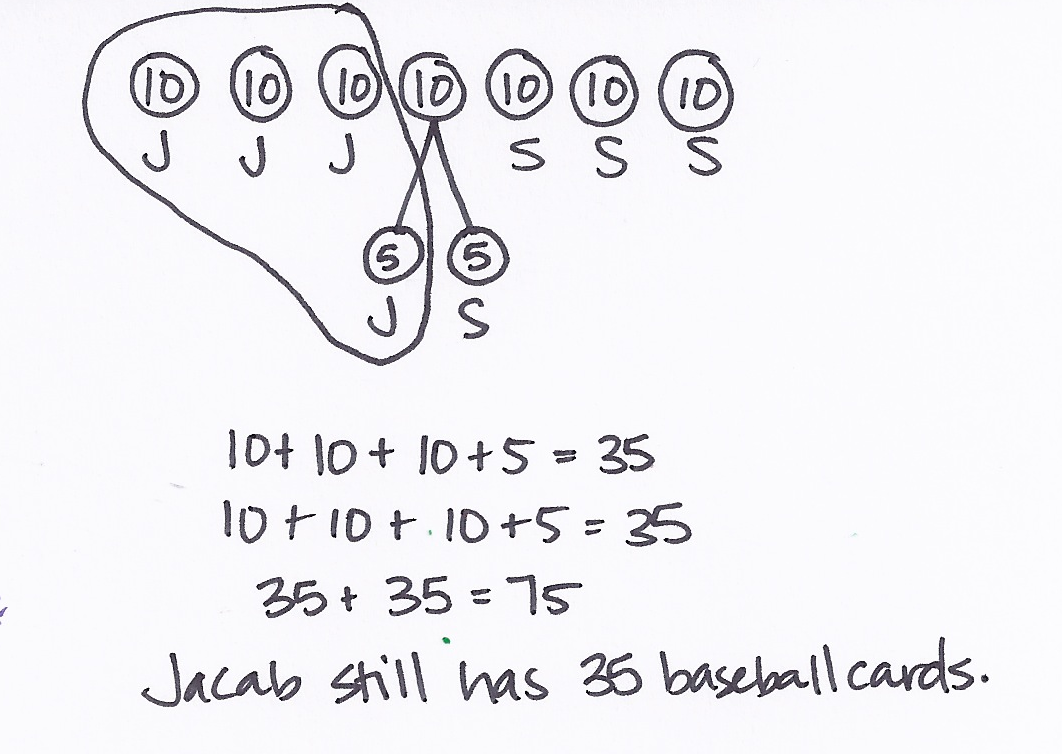 10 10 10 10 10 10 10
J J J S S S
5 5
J S
10 + 10 + 10 + 5 = 35
10 + 10 + 10 + 5 = 35
35 + 35 = 75
Jacab still has 35 baseball cards.